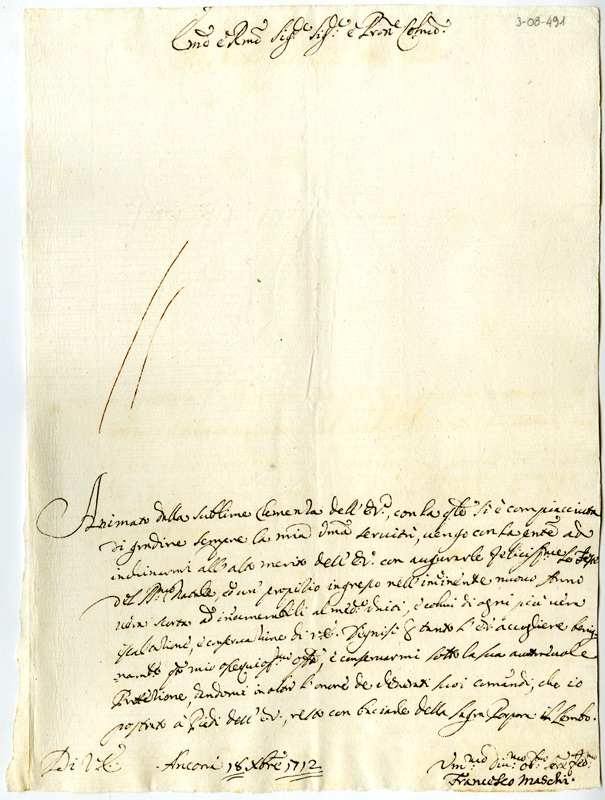 3-08-491
Em̃o e Rmõ Sig.re Sig.re e Pron̄e Col.mo
Animato dalla sublime Clemenza dell'E.V., con la q̃le si è compiacciuta
di gradire sempre la mia Um̃a servitù, vengo con la p̃nte ad
inchinarmi all'alto merito dell'E.V. con augurarle felicissime le Feste
del SS.mo Natale con un propitio ingresso nell'im̃inente nuovo Anno
ad innumerabili al med.o e colmi di ogni più vera
e conservatione di V.E. Degnisi tanto l'E.V. accogliere benig-
nam.te q.to mio osseq.mo off.o, e conservarmi sotto la sua autorevole
Protezione, dandomi in altre l'onore de venerati suoi comandi, che io
prostrato a Piedi dell'E.V., resto con baciarle della Sagra Porpora il Lembo.
Di V.E. Ancona 18 Xbre 1712
Um.mo Div.mo Ob.mo
Francesco Maschi